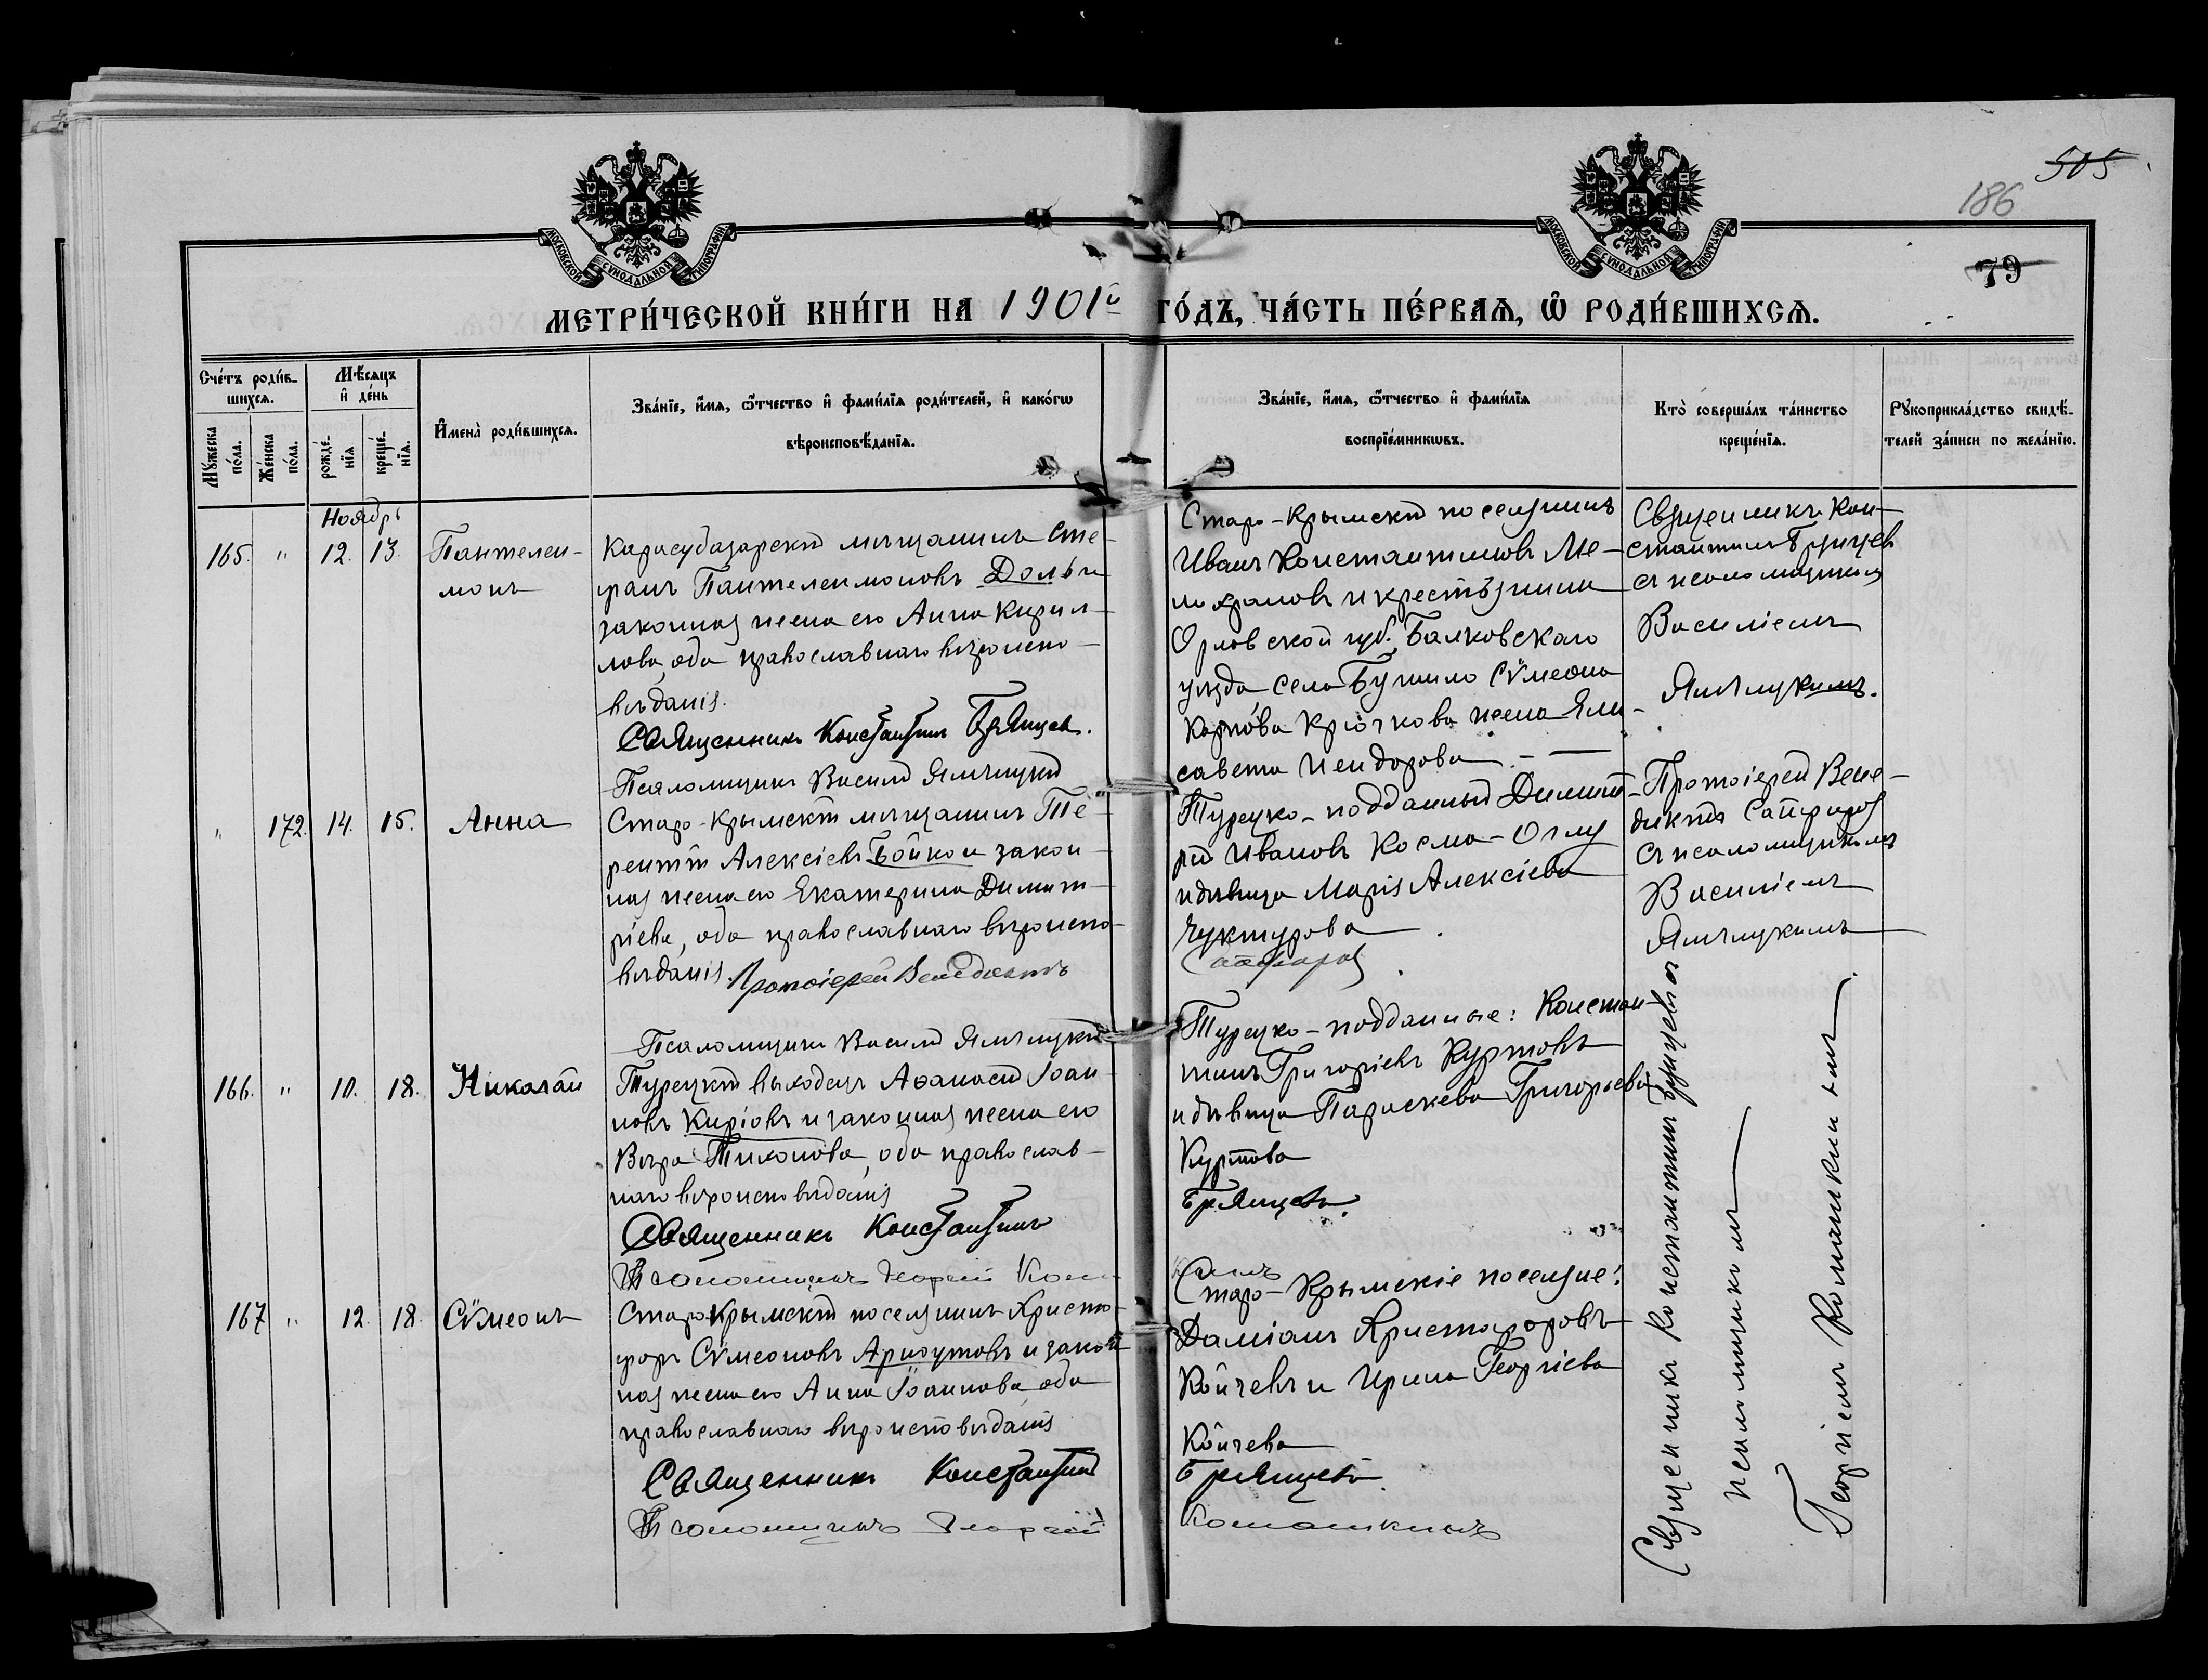 505
186
79
МОСКОВСКОЙ СѴНОДАЛЬНОЙ ТИПОГРАФІИ
МОСКОВСКОЙ СѴНОДАЛЬНОЙ ТИПОГРАФІИ
МЕТРИ́ЧЕСКОЙ КНИ́ГИ НА 1901й ГО́ДЪ, ЧА́СТЬ ПЕ́РВАѦ, Ѡ҆ РОДИ́ВШИХСѦ.
Сче́тъ роди́в-
шихсѧ.
Мѣ́сѧцъ
и҆ де́нь
Мꙋ́жеска
по́ла.
Же́нска
по́ла.
рожде́-
нїѧ
креще́-
нїѧ.
И҆мена̀ роди́вшихсѧ.
Зва́нїе, и҆́мѧ, ѻ҆́тчество и҆ фами́лїѧ роди́телей, и҆ како́гѡ
вѣроисповѣ́данїѧ.
Зва́нїе, и҆́мѧ, ѻ҆́тчество и҆ фами́лїѧ
воспрїе́мникѡвъ.
Кто̀ соверша́лъ та́инство
креще́нїѧ.
Рꙋкоприкла́дство свидѣ́-
телей за́писи по жела́нїю.
Ноябрь
165. " 12. 13. Пантелеи-
монъ
Карасубазарскій мѣщанинъ Сте-
фанъ Пантелеимоновъ Долъ и
законная жена его Анна Кирил-
лова, оба православнаго вѣроиспо-
вѣданія.
Священникъ Константинъ Брянцев.
Псаломщикъ Василій Ямчицкій
Старо-Крымскій поселянинъ
Иванъ Константиновъ Ме-
нохрамовъ и крестьянина
Орловской губ. Балковскаго
уѣзда села Бушило Сѵмеона
Карпова Крючкова жена Ели-
савета Исидорова.
Священникъ Кон-
стантинъ Брянцевъ
съ псаломщикомъ
Василіемъ
Ямчицкимъ.
" 172. 14. 15. Анна
Старо-Крымскій мѣщанинъ Те-
рентій Алексіевъ Бойко и закон-
ная жена его Екатерина Димит-
ріева, оба православнаго вѣроиспо-
вѣданія. Протоіерей Венедиктъ
Псаломщикъ Василій Ямчицкій
Турецко-подданный Димит-
рій Ивановъ Косма-Оглу
и дѣвица Марія Алексіева
Чуктурова
Сапфировъ
Протоіерей Вене-
диктъ Сапфировъ
съ псаломщикомъ
Василіемъ
Ямчицкимъ
166. " 10. 18. Николай
Турецкій выходецъ Аѳанасій Іоан-
новъ Киріовъ и законная жена его
Вѣра Тихонова, оба православ-
наго вѣроисповѣданія
Священникъ Константинъ
Псаломщикъ Георгій Кома-
Турецко-подданные: Констан-
тинъ Григоріевъ Куртовъ
и дѣвица Параскева Григорьева
Куртова
Брянцевъ.
167 " 12. 18. Сѵмеонъ
Старо-Крымскій поселянинъ Христо-
форъ Сѵмеоновъ Арнаутовъ и закон-
ная жена его Анна Іоаннова, оба
православнаго вѣроисповѣданія
Священникъ Константинъ
Псаломщикъ Георгій
Старо-Крымскіе поселяне:
Даміанъ Христофоровъ
Койчевъ и Ирина Георгіева
Койчева
Брянцевъ.
Комашкинъ
Священникъ Константинъ Брянцевъ съ
псаломщикомъ
Георгіемъ Комашкинымъ